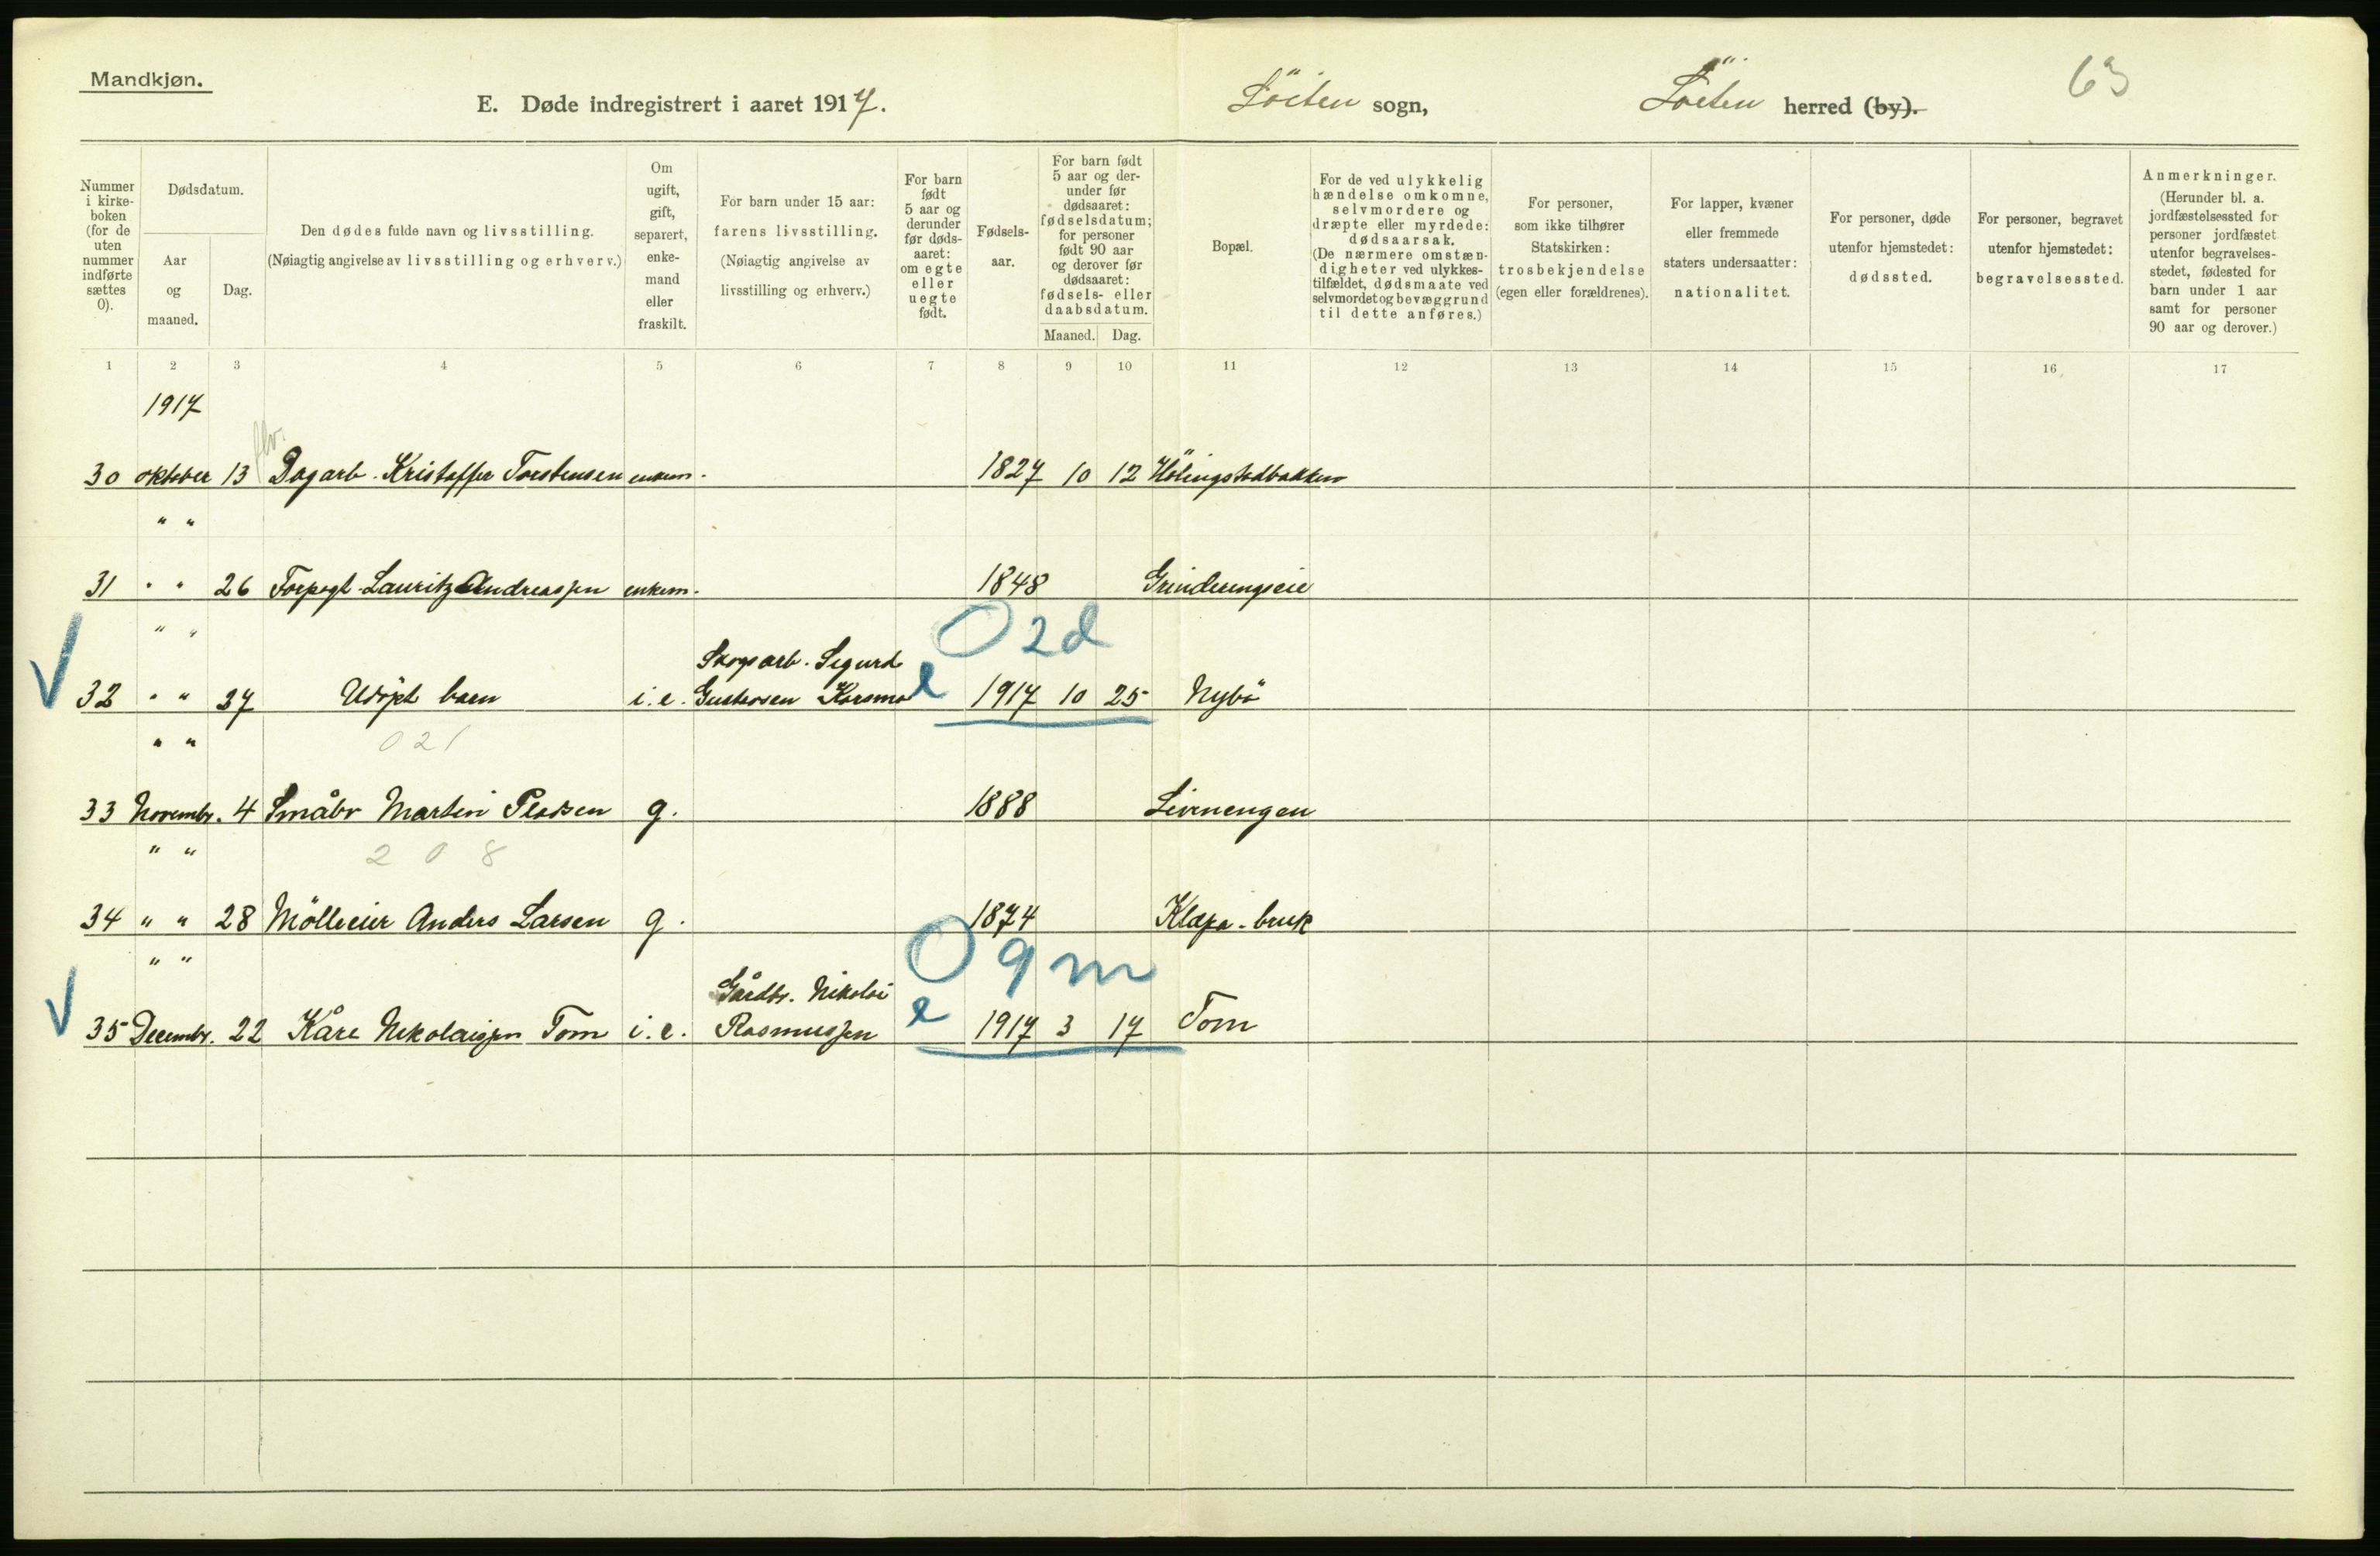 Mandkjøn.
E. Døde indregistrert i aaret 1917.
Löiten sogn,
Löiten herred (by).
63
Nummer i kirke-boken (for de uten nummer indførte sættes 0).
Dødsdatum.
Aar og maaned.
Dag.
Den dødes fulde navn og livsstilling.
(Nøiagtig angivelse av livsstilling og erhverv.)
Om ugift, gift, separert, enke-mand eller fraskilt.
For barn under 15 aar: farens livsstilling.
(Nøiagtig angivelse av livsstilling og erhverv.)
For barn født 5 aar og derunder før døds-aaret: om egte eller uegte født.
Fødsels-aar.
For barn født 5 aar og der-under før dødsaaret: fødselsdatum; for personer født 90 aar og derover før dødsaaret: fødsels- eller daabsdatum.
Maaned.
Dag.
Bopæl.
For de ved ulykkelig hændelse omkomne, selvmordere og dræpte eller myrdede: dødsaarsak.
(De nærmere omstæn-digheter ved ulykkes-tilfældet, dødsmaate ved selvmordet og bevæggrund til dette anføres.)
For personer, som ikke tilhører Statskirken: trosbekjendelse (egen eller forældrenes).
For lapper, kvæner eller fremmede staters undersaatter: nationalitet.
For personer, døde utenfor hjemstedet: dødssted.
For personer, begravet utenfor hjemstedet: begravelsessted.
Anmerkninger.
(Herunder bl. a. jordfæstelsessted for personer jordfæstet utenfor begravelses-stedet, fødested for barn under 1 aar samt for personer 90 aar og derover.)
1 2 3 4 5 6 7 8 9 10 11 12 13 14 15 16 17
1917
30 oktober 13 Dagarb. Kristoffer Torstensen enkem. 1827 10 12
" "
31 " " 26 Lauritz Andreassen enkem. 1848 Grinderengseie
" "
O 2d
Skogsarb. Sigurd
32 " " 27 Udöpt barn i.e. Gustavsen Korsmo e 1917 10 25 Nybö
" "
021
33 Novembr. 4 Småbr Martin g. 1888
" "
2 0 8
34 " " 28 Mölleeier Anders Larsen g. 1874 Klæpa-bruk
" "
O 9m
Gårdbr. Nikolai
35 Decembr. 22 Kåre Nikolaisen Tom i.e. Rasmussen e 1917 3 17 Tom